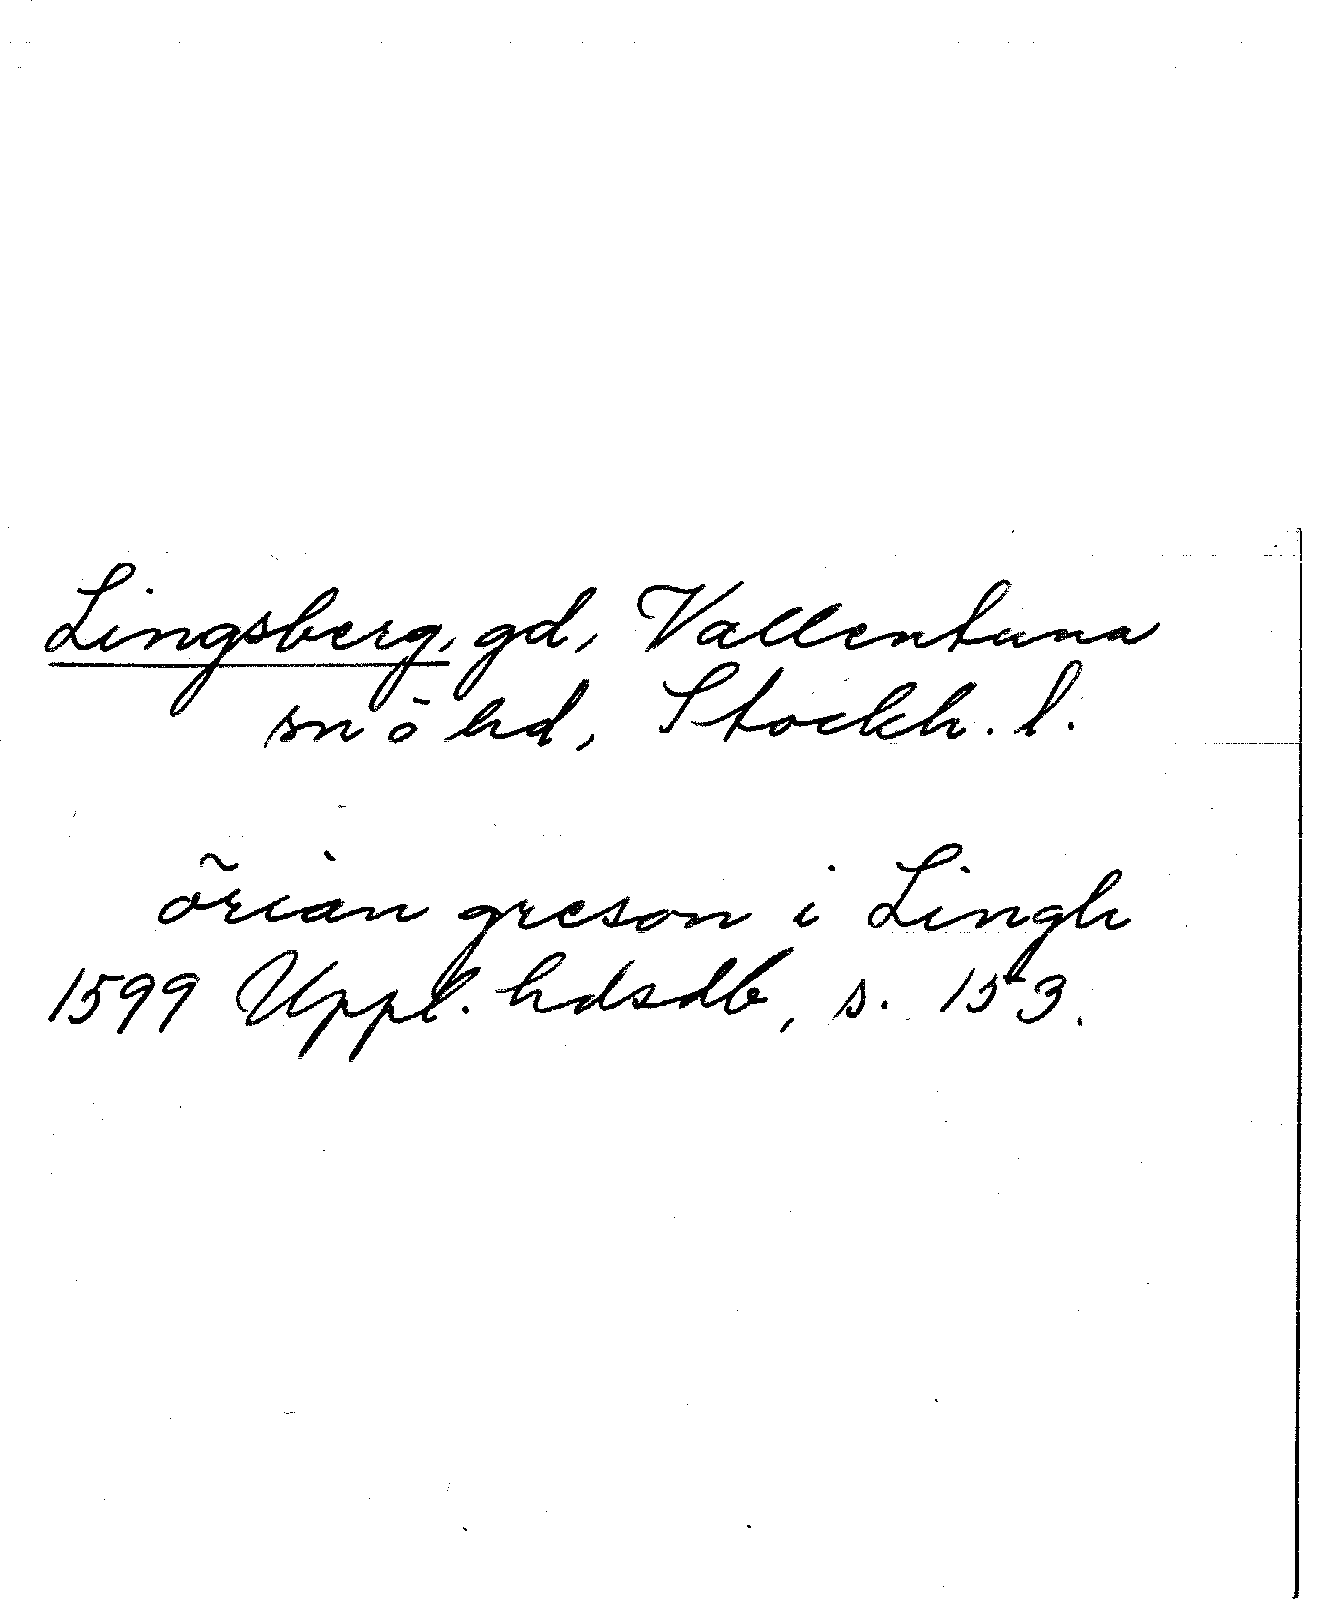 Lingsberg, gd, Vallentuna
sn ō hd, Stockh. l.
õrian greson i Lingh
1599 Uppl. hdsdb, s. 153.